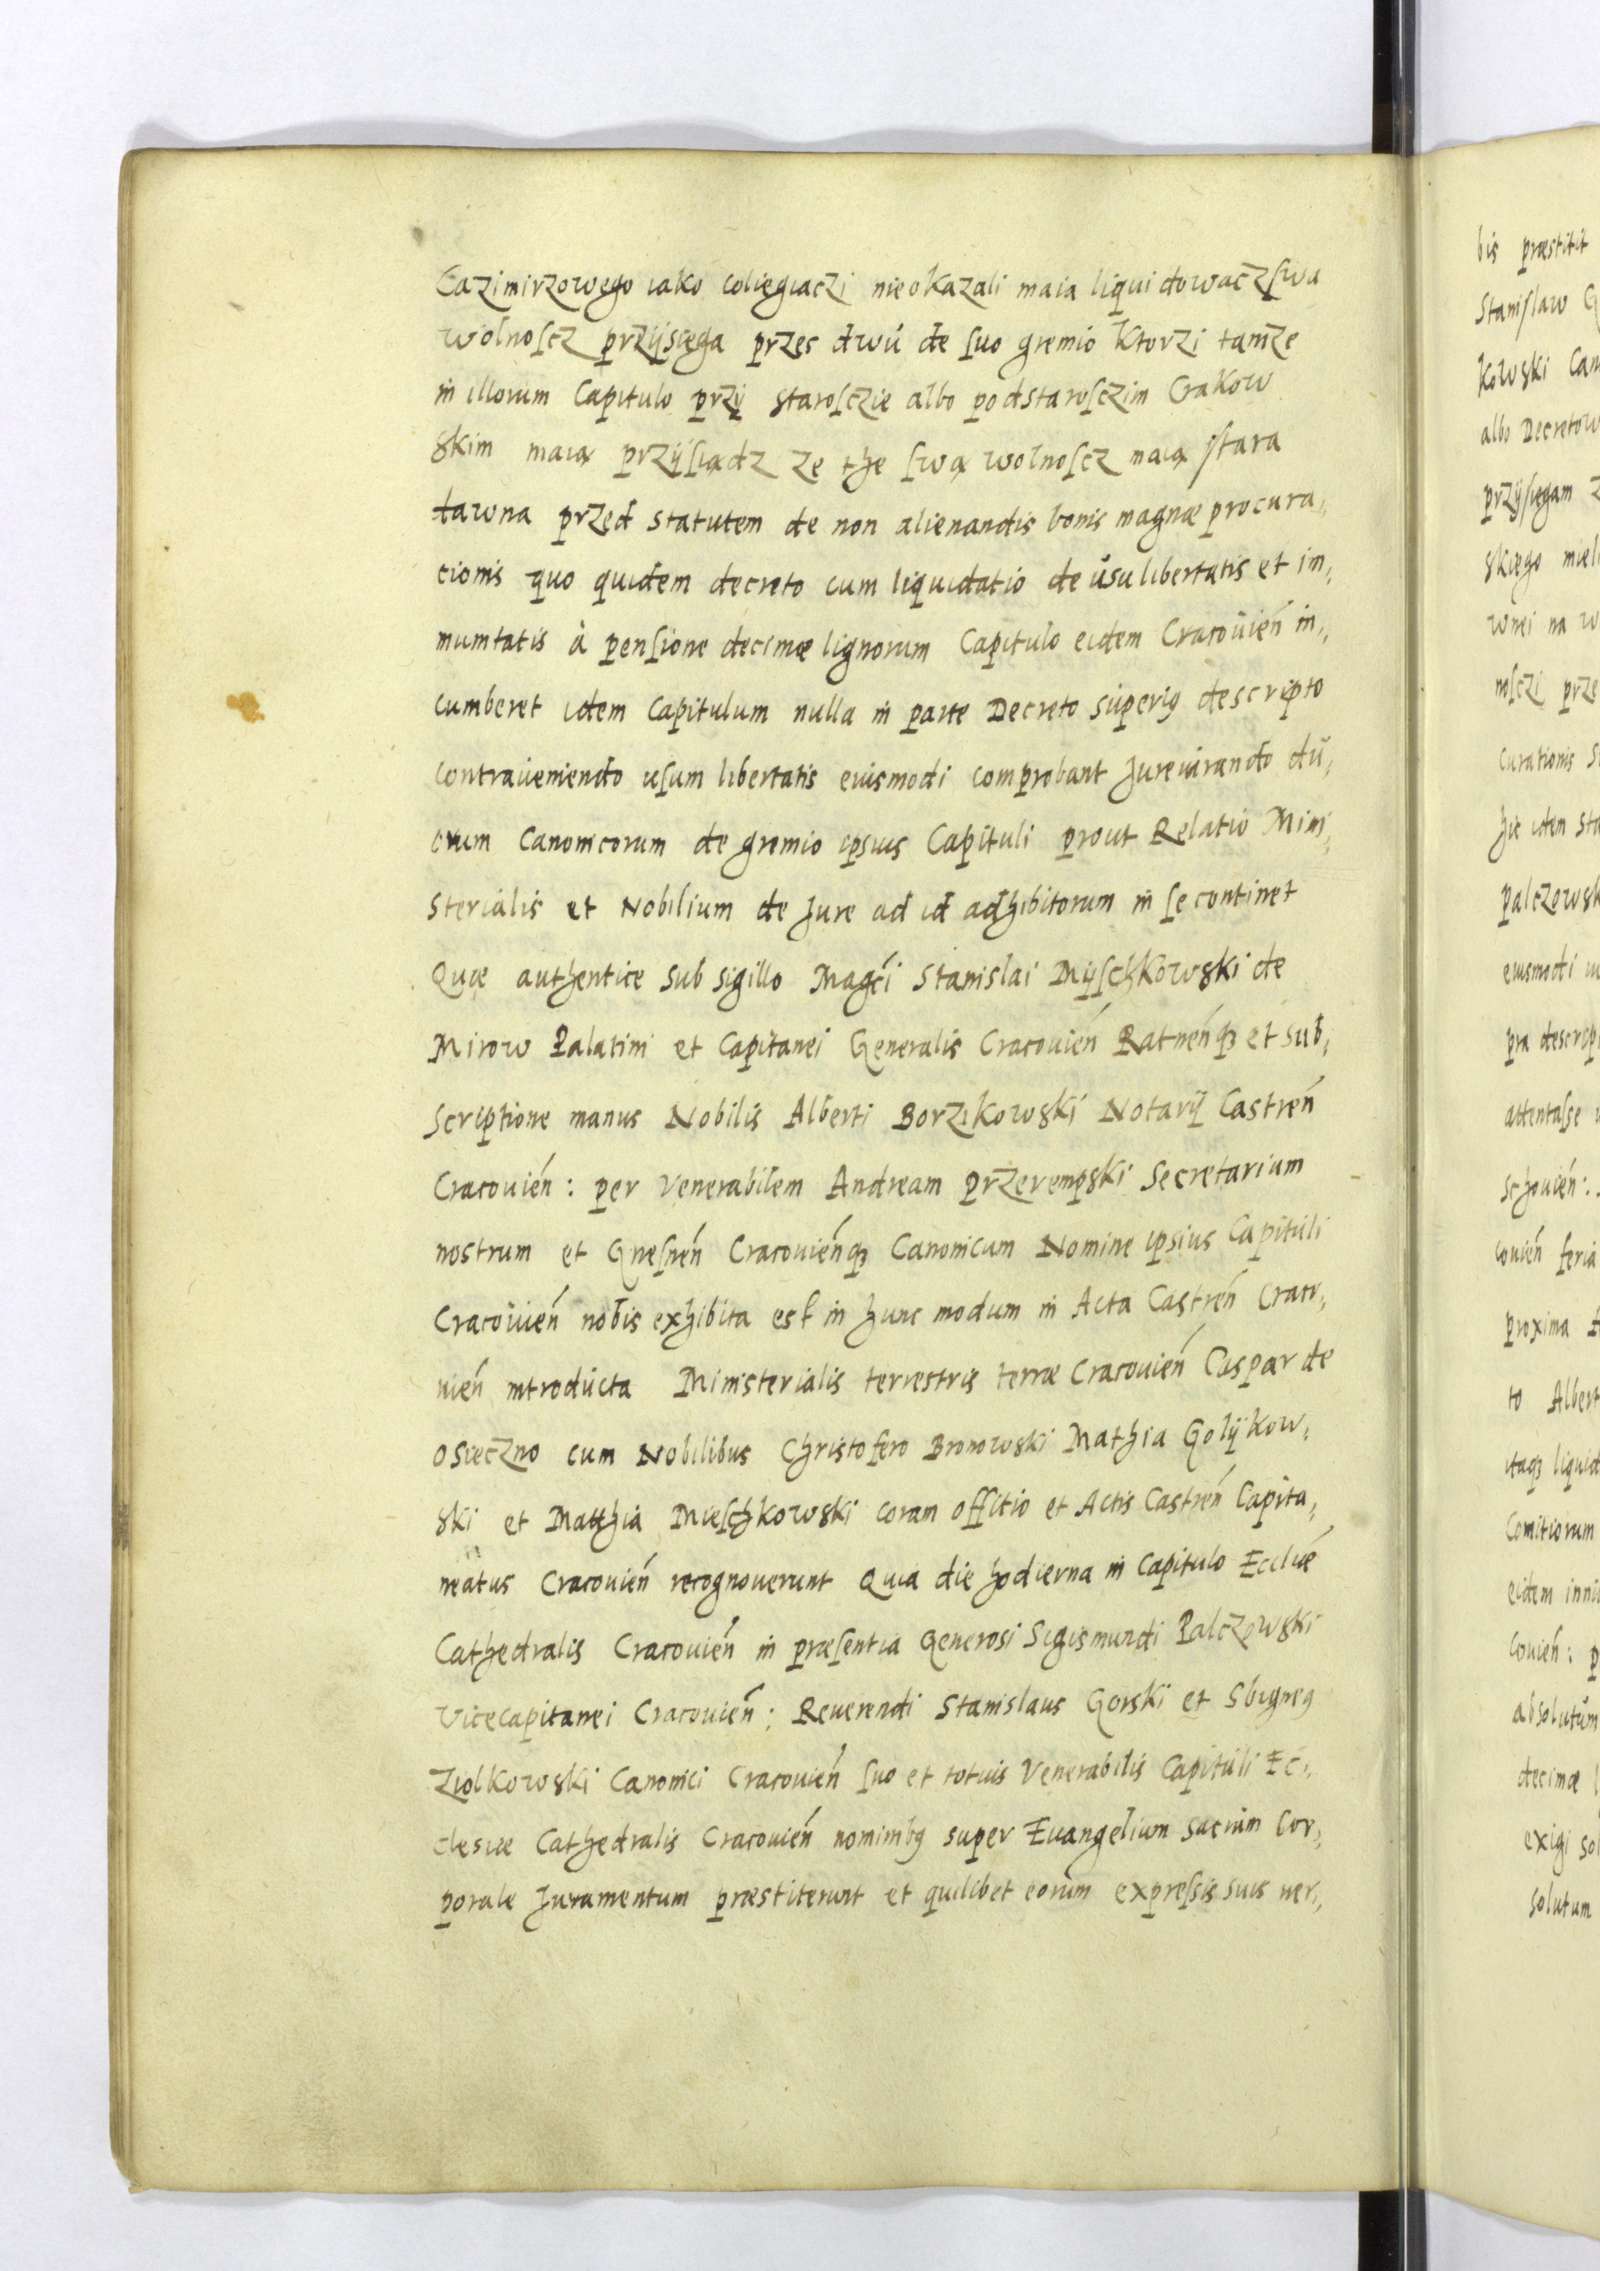 Cazimirzowego iako coliegiaczi nieokazali maia liqui dowaczſwa
wolnoſcz przÿsięga przes dwu de ſuo gremio Ktorzi tamże
in illorum Capitulo przÿ staroſczie albo podstaroſczim Crakow
skim maią przÿſiądz że the ſwą wolnoſcz maią ſtara
dawna przed statutem de non alienandis bonis magnæ procura,,
cionis quo quidem decreto cum liquidatio de usu libertatis et im,,
munitatis à penſione decimæ lignorum Capitulo eidem Cracouień in,,
cumberet idem Capitulum nulla in parte Decreto superiꝯ descripto
contraueniendo uſum libertatis eiusmodi comprobant Jureiurando du,,
orum Canonicorum de gremio ipsius Capituli prout Relatio Mini,,
sterialis et Nobilium de Jure ad id adhibitorum in ſe continet
Quæ authentice sub sigillo Magci Stanislai Mÿſchkowski de
Mirow Palatini et Capitanei Generalis Cracouień Ratneńqꝫ et sub,,
scriptione manus Nobilis Alberti Borzikowski Notarÿ Castreń
Cracouień: per Venerabilem Andream Przerempski Secretarium
nostrum et Gneſneń Cracouieńqꝫ Canonicum Nomine ipsius Capituli
Cracouień nobis exhibita est in hunc modum in Acta Castreń Craco,,
uień introducta Ministerialis terrestris terræ Cracouień Caspar de
Osieczno cum Nobilibus Christofero Bronowski Mathia Golÿkow,,
ski et Matthia Mieſchkowski coram offitio et Actis Castreń Capita,,
neatus Cracouień recognouerunt Quia die hodierna in Capitulo Eccliæ
Cathedralis Cracouień in præſentia Generosi Sigismundi Palczowski
Vicecapitanei Cracouień: Reuerendi Stanislaus Gorski et Sbigneꝯ
Ziolkowski Canonici Cracouień ſuo et totius Venerabilis Capituli Ec,,
clesiæ Cathedralis Cracouień nominibꝯ super Euangelium sacrum Cor,,
porale Juramentum præstiterunt et quilibet eorum expreſsis suis uer,,
bis præstitit
Staniſlaw
kowski
albo Decretow
przÿſięgam
skiego
wnei na
noſczi
curationis
hic idem
palczowsk
eiusmodi
pra descrip
attentaſse
schouień:
couień feria
proxima
to Albert
itaqꝫ liquid
Comitiorum
eidem
couień:
absolutum
decimæ
exigi
solutum